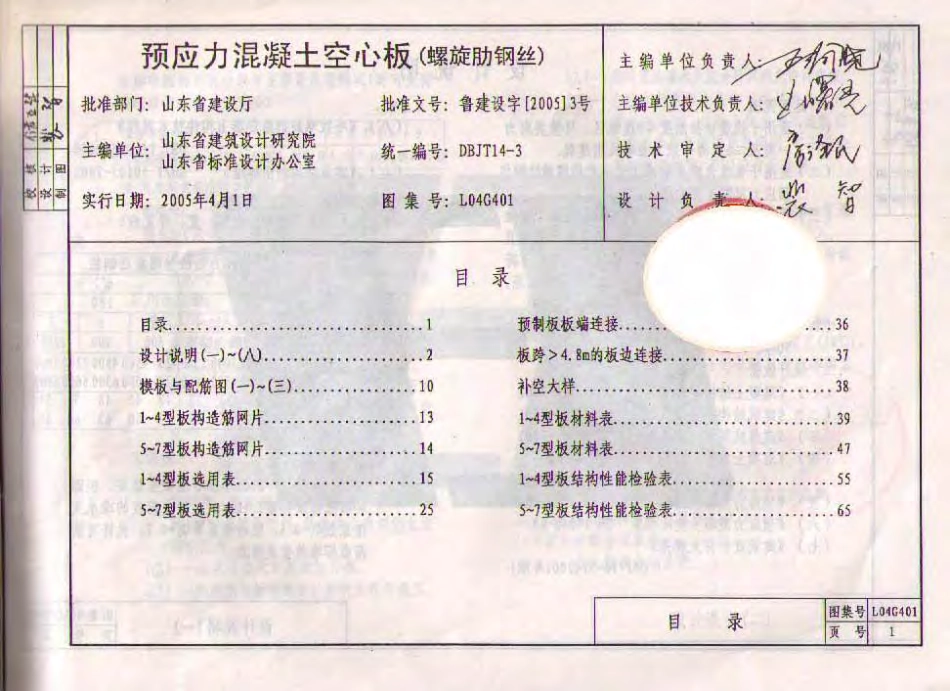 预应力混凝土空心板(螺旋肋钢丝)
批准部门: 山东省建设厅 批准文号: 鲁建设字[2005]3号
主编单位: 山东省建筑设计研究院
山东省标准设计办公室
统一编号: DBJT14-3
实行日期: 2005年4月1日 图集号: L04G401
主编单位负责人:
主编单位技术负责人:
技术审定人:
设计负责人:
校核
设计
制图
目 录
目录................................1
设计说明(一)~(八)....................2
模板与配筋图(一)~(三)................10
1~4型板构造筋网片....................13
5~7型板构造筋网片....................14
1~4型板选用表........................15
5~7型板选用表........................25
预制板板端连接.......................36
板跨>4.8m的板边连接..................37
补空大样.............................38
1~4型板材料表........................39
5~7型板材料表........................47
1~4型板结构性能检验表................55
5~7型板结构性能检验表................65
目 录
图集号 L04G401
页 号 1